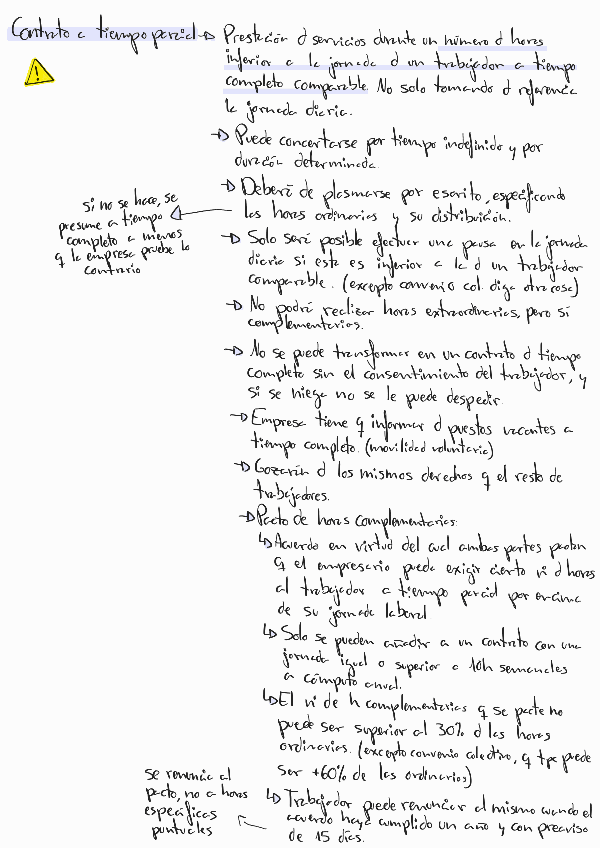 Contrato a tiempo parcial → Prestación d servicios durante un número d horas
inferior a la jornada d un trabajador a tiempo
completo comparable. No solo tomando d referencia
la jornada diaria.
→ Puede concertarse por tiempo indefinido y por
duración determinada.
→ Deberá de plasmarse por escrito, especificando
las horas ordinarias y su distribución.
si no se hace, se
presume a tiempo
completo a menos
q la empresa pruebe lo
contrario
→ Solo será posible efectuar una pausa en la jornada
diaria si esta es inferior a la d un trabajador
comparable. (excepto convenio col. diga otra cosa)
→ No podrá realizar horas extraordinarias, pero sí
complementarias.
→ No se puede transformar en un contrato d tiempo
completo sin el consentimiento del trabajador, y
si se niega no se le puede despedir.
→ Empresa tiene q informar d puestos vacantes a
tiempo completo. (movilidad voluntaria)
→ Gozarán d los mismos derechos q el resto de
trabajadores.
→ Pacto de horas complementarias:
↳ Acuerdo en virtud del cual ambas partes pactan
q el empresario pueda exigir cierto nº d horas
al trabajador a tiempo parcial por encima
de su jornada laboral.
↳ Solo se pueden añadir a un contrato con una
jornada igual o superior a 10h semanales
a cómputo anual.
↳ El nº de h complementarias q se pacte no
puede ser superior al 30% d las horas
ordinarias. (excepto convenio colectivo, q tpc puede
ser +60% de las ordinarias)
↳ Trabajador puede renunciar al mismo cuando el
acuerdo haya cumplido un año y con preaviso
de 15 días.
se renuncia al
pacto, no a horas
específicas
puntuales